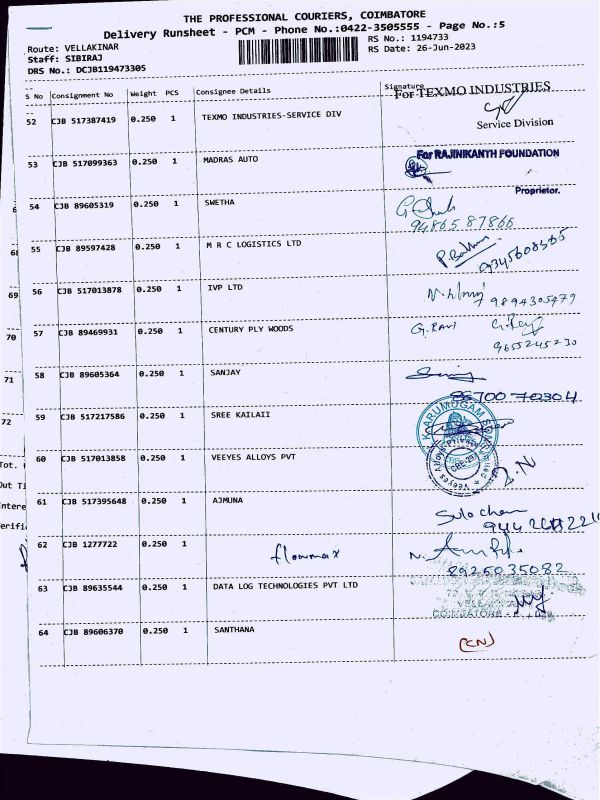 THE PROFESSIONAL COURIERS, COIMBATORE
Delivery Runsheet - PCM - Phone No.:0422-3505555 - Page No.:5
Route: VELLAKINAR
RS No.: 1194733
Staff: SIBIRAJ
RS Date: 26-Jun-2023
DRS No.: DCJB119473305
S No Consignment No Weight PCS Consignee Details Signature
For TEXMO INDUSTRIES
52 CJB 517387419 0.250 1 TEXMO INDUSTRIES-SERVICE DIV
Service Division
53 CJB 517099363 0.250 1 MADRAS AUTO
For RAJINIKANTH FOUNDATION
Proprietor.
54 CJB 89605319 0.250 1 SWETHA
94865 87866
55 CJB 89597428 0.250 1 M R C LOGISTICS LTD
69 56 CJB 517013878 0.250 1 IVP LTD
9894305479
70 57 CJB 89469931 0.250 1 CENTURY PLY WOODS G. RAVI
9655245230
71 58 CJB 89605364 0.250 1 SANJAY
72 59 CJB 517217586 0.250 1 SREE KAILAII
60 CJB 517013858 0.250 1 VEEYES ALLOYS PVT
Tot.
Out Ti
61 CJB 517395648 0.250 1 AJMUNA
Sulochan
62 CJB 1277722 0.250 1 flowmax
8925035082
63 CJB 89635544 0.250 1 DATA LOG TECHNOLOGIES PVT LTD
COIMBATORE
64 CJB 89606370 0.250 1 SANTHANA
(CN)